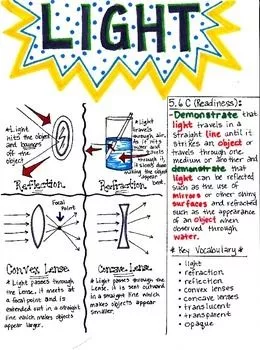 LIGHT
*Light
hits the object
and bounces
off the
object
Reflection
*Light
travels
through air.
As it hits
water and
travels
through it,
it slows down
making the object
appear
bent.
Refraction
Focal
Point
Convex Lense
* Light passes through
the Lense. It meets at
a focal point and is
extended out in a straight
line which makes objects
appear larger.
Concave Lense
* Light passes through the
Lense. It is sent outward
in a straight line which
makes objects appear
smaller.
5.6C (Readiness):
-Demonstrate that
light travels in a
straight line until it
strikes an object or
travels through one
medium or another and
demonstrate that
light can be reflected
such as the use of
mirrors or other shiny
surfaces and refracted
such as the appearance
of an object when
observed through
water.
* Key Vocabulary *
• light
• refraction
• reflection
• convex lenses
• concave lenses
• translucent
• transparent
• opaque